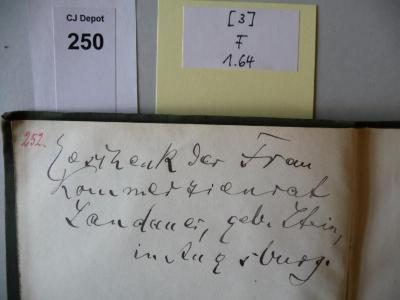 CJ Depot
250
[3]
F
1.64
252.
Geschenk der Frau
Kommerzienrat
Landauer, geb. Stein,
in Augsburg.